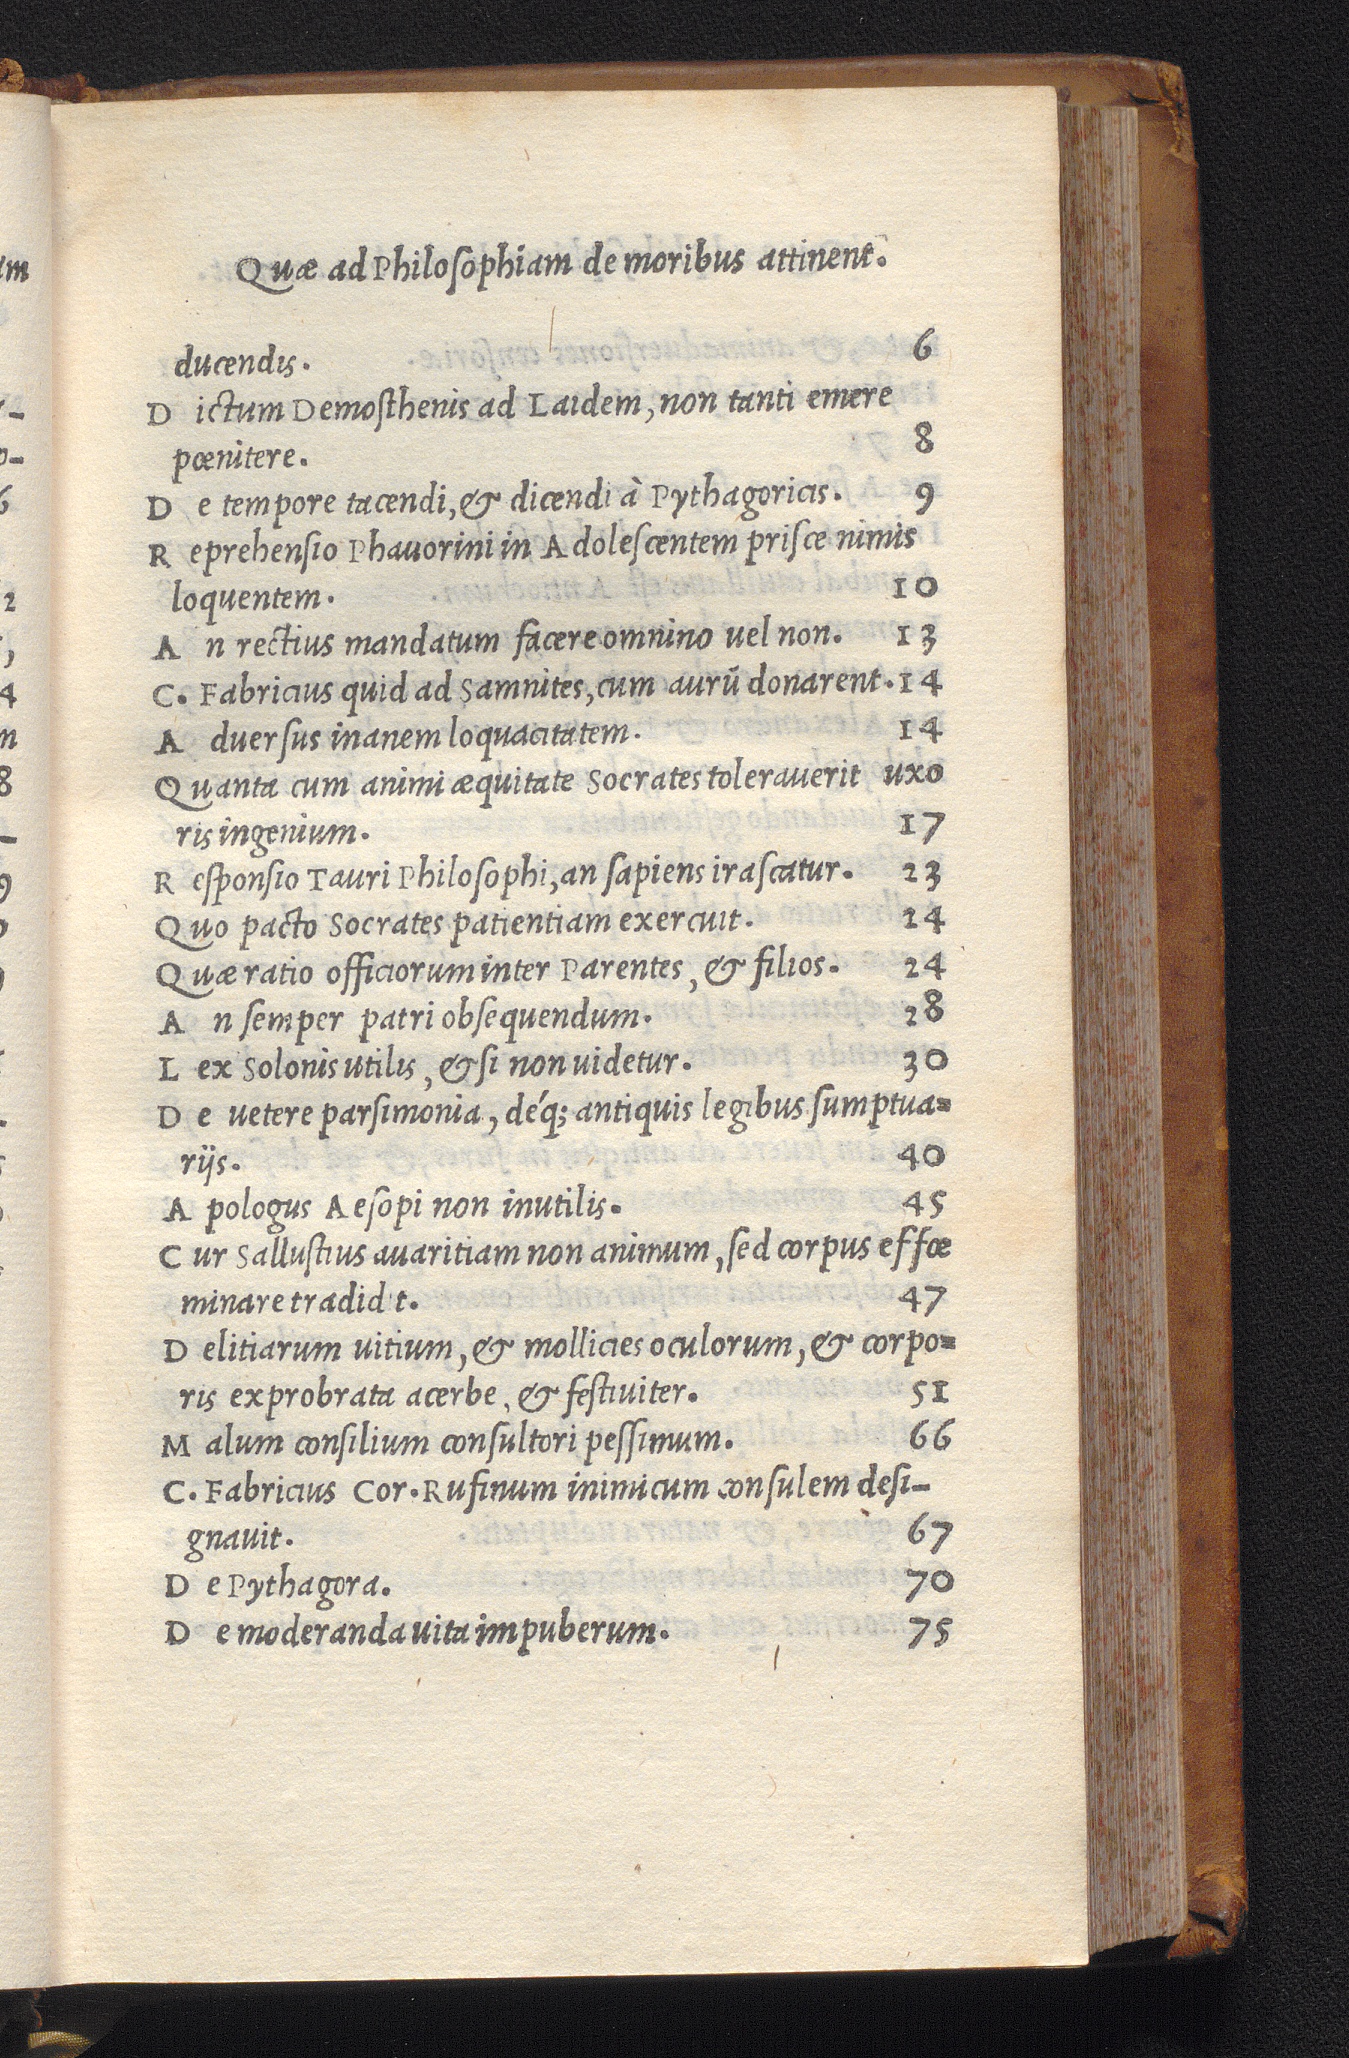 Quæ ad Philosophiam de moribus attinent.
ducendis. 6
Dictum Demosthenis ad Laidem, non tanti emere
pœnitere. 8
De tempore tacendi, & dicendi à Pythagoricis. 9
Reprehensio Phauorini in Adolescentem prisce nimis
loquentem. 10
An rectius mandatum facere omnino uel non. 13
C. Fabricius quid ad Samnites, cum aurū donarent. 14
Aduersus inanem loquacitatem. 14
Quanta cum animi æquitate Socrates tolerauerit uxo
ris ingenium. 17
Responsio Tauri Philosophi, an sapiens irascatur. 23
Quo pacto Socrates patientiam exercuit. 24
Quæ ratio officiorum inter Parentes, & filios. 24
An semper patri obsequendum. 28
Lex Solonis utilis, & si non uidetur. 30
De uetere parsimonia, déq; antiquis legibus sumptua=
rijs. 40
Apologus Aesopi non inutilis. 45
Cur Sallustius auaritiam non animum, sed corpus effœ
minare tradidit. 47
Delitiarum uitium, & mollicies oculorum, & corpo=
ris exprobrata acerbe, & festiuiter. 51
Malum consilium consultori pessimum. 66
C. Fabricius Cor. Rufinum inimicum consulem desi-
gnauit. 67
De Pythagora. 70
De moderanda uita impuberum. 75